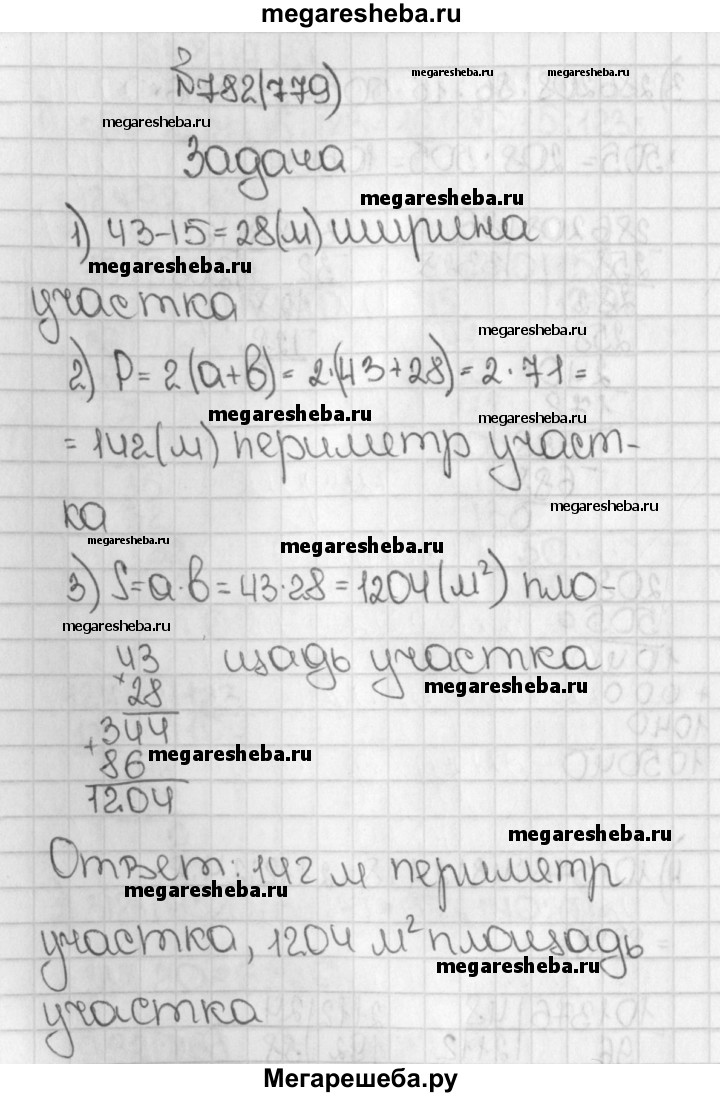 megaresheba.ru
№782(779)
megaresheba.ru megaresheba.ru
megaresheba.ru
Задача
megaresheba.ru
1) 43-15=28(м) ширина
megaresheba.ru
участка
megaresheba.ru
2) P=2(а+в)=2·(43+28)=2·71=
megaresheba.ru megaresheba.ru
=142(м) периметр участ-
ка
megaresheba.ru megaresheba.ru
3) S=а·в=43·28=1204(м²) пло-
megaresheba.ru
43 щадь участка
× 28
megaresheba.ru
344
+ 86
megaresheba.ru
1204
megaresheba.ru
Ответ: 142 м периметр
megaresheba.ru
участка, 1204 м² площадь
megaresheba.ru
участка
Мегарешеба.ру